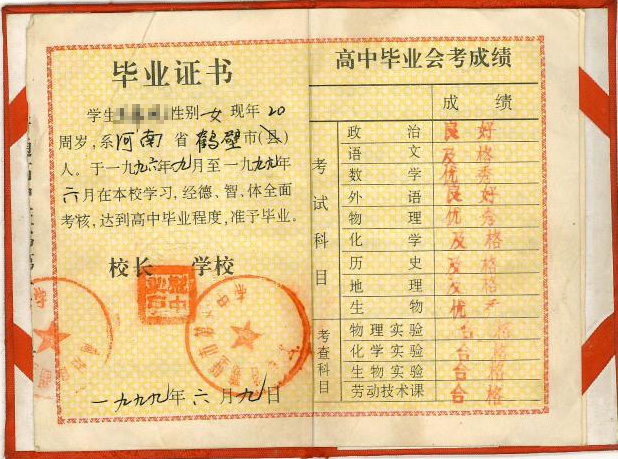 毕业证书
学生 性别女现年20
周岁,系河南省鹤壁市(县)
人。于一九九六年九月至一九九九年
六月在本校学习,经德、智、体全面
考核,达到高中毕业程度,准予毕业。
校长 学校
一九九九年六月九日
高中毕业会考成绩
成绩
考试科目
政治 良好
语文 及格
数学 优秀
外语 良好
物理 优秀
化学 及格
历史 及格
地理 及格
生物 优
考查科目
物理实验 合格
化学实验 合格
生物实验 合格
劳动技术课 合格